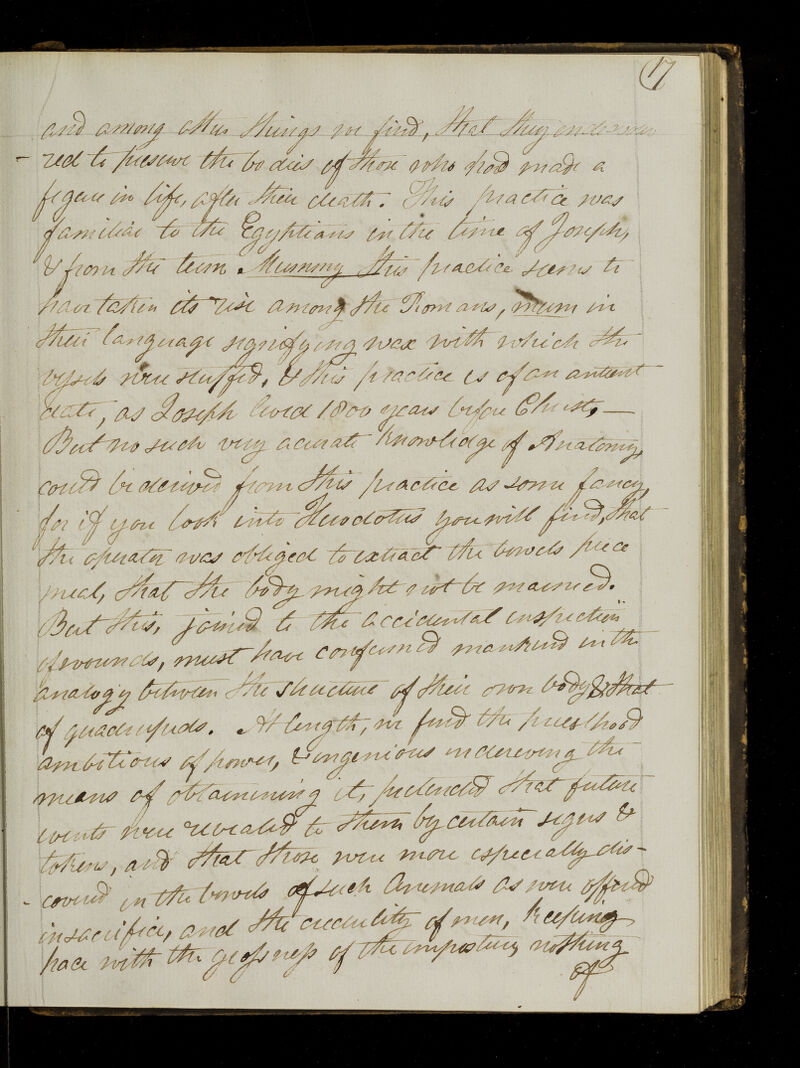 17
and among other things we find, that they endeavou
red to preserve the bodies of those who had made a
figure in life, after their death. This practice was
familiar to the Egyptians in the time of Joseph,
& from the term Mummy this practice seems to
have taken its rise among the Romans, mum in
their language signifying wax with which the
vessels were stuffed, & this practice is of an antient
date, as Joseph lived 1800 years before Christ, —
But no such very acurate knowledge of Anatomy,
could be derived from this practice as some fancy,
for if you look into Herodotus you will find, that
the operator was obliged to extract the bowels piece
meal, that the body might not be maimed.
But this, joined to the accidental inspection
of wounds, must have confirmed mankind in the
analogy between the structure of their own body & that
of quadrupeds. At length, we find the priesthood
ambitious of power, & ingenious in dereving the
means of obtainening it, pretended that future
events were revealed to them by certain signs &
tokens, and that those were more especially dis-
covered in the bowels of such Animals as were offered
in sacrifice, and the credulity of men, keeping
pace with the grossness of the imposture, nothing
of